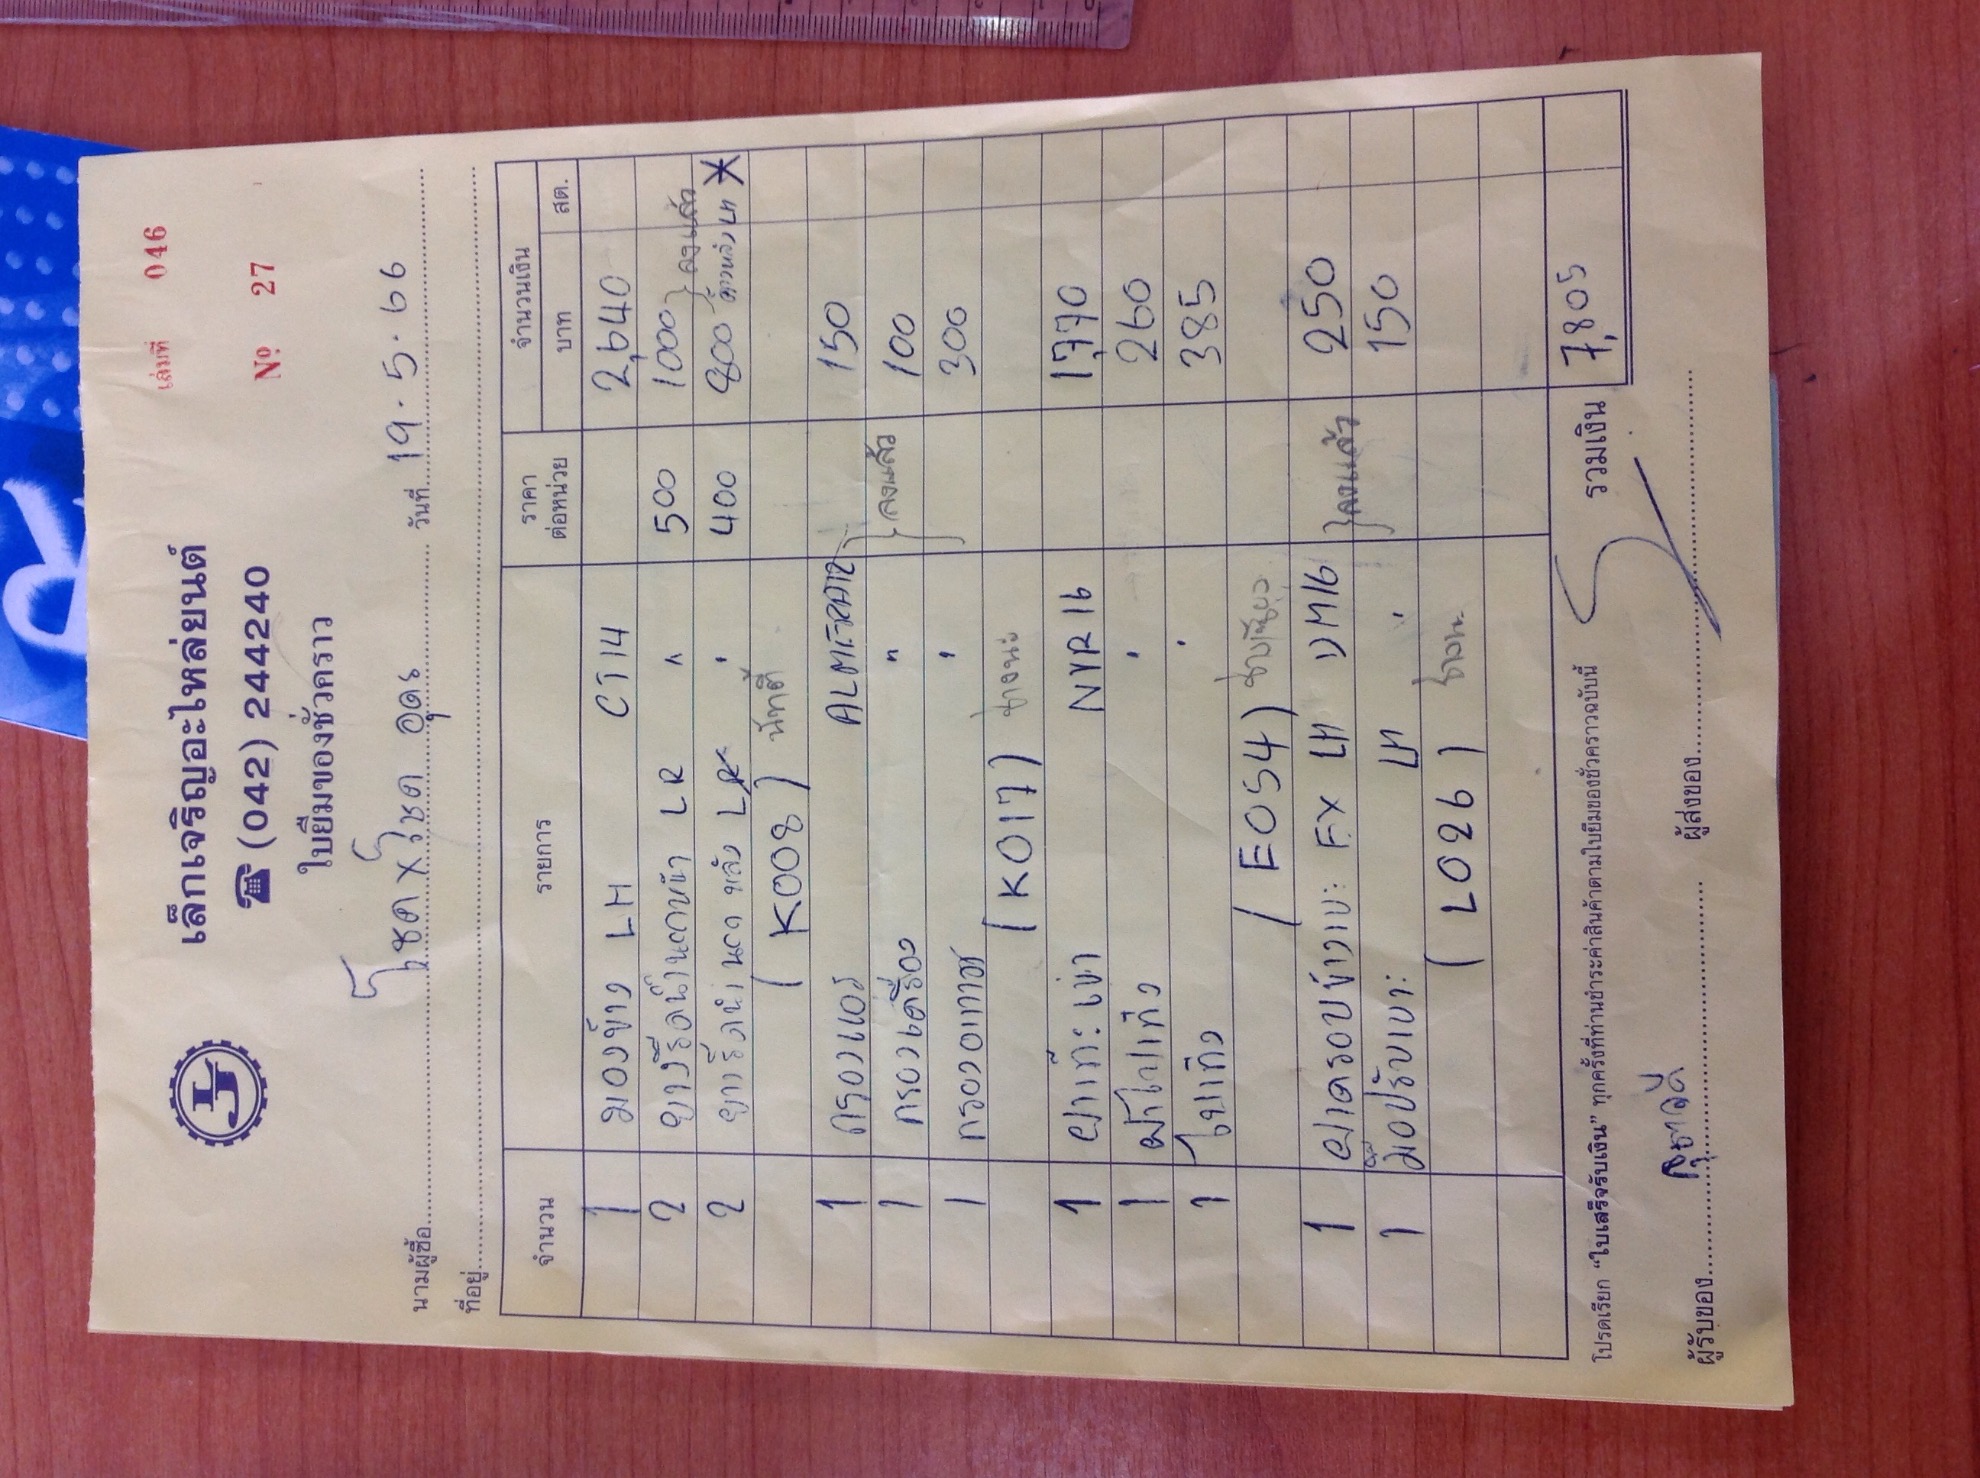 เล่มที่ 046
เล็กเจริญอะไหล่ยนต์
☎ (042) 244240
Nº 27
ใบยืมของชั่วคราว
นามผู้ซื้อ โชค x โชค อุดร วันที่ 19.5.66
ที่อยู่
จำนวน รายการ ราคาต่อหน่วย จำนวนเงิน
บาท สต.
1 มองข้าง LH CT14 2,640
2 ยางรีดน้ำนอกหน้า LR " 500 1000 } ลงแล้ว
2 ยางรีดน้ำนอก หลัง LR " 400 800
(K008)
1 กรองแอร์ ALMERA 12 150
1 กรองเครื่อง " 100 } ลงแล้ว
1 กรองอากาศ " 300
(K017) ช่างนะ
1 ฝาเทิะ NYR 16 1,770
1 ผ้าใบเทิง " 260
1 ใบเทิง " 385
(E054)
1 ฝาครอบข้างเบาะ EX LH DM16 250 } ลงแล้ว
1 มือปรับเบาะ LH " 150
(L026)
รวมเงิน 7,805
โปรดเรียก “ใบเสร็จรับเงิน” ทุกครั้งที่ท่านชำระค่าสินค้าตามใบยืมของชั่วคราวฉบับนี้
ผู้รับของ ผู้ส่งของ